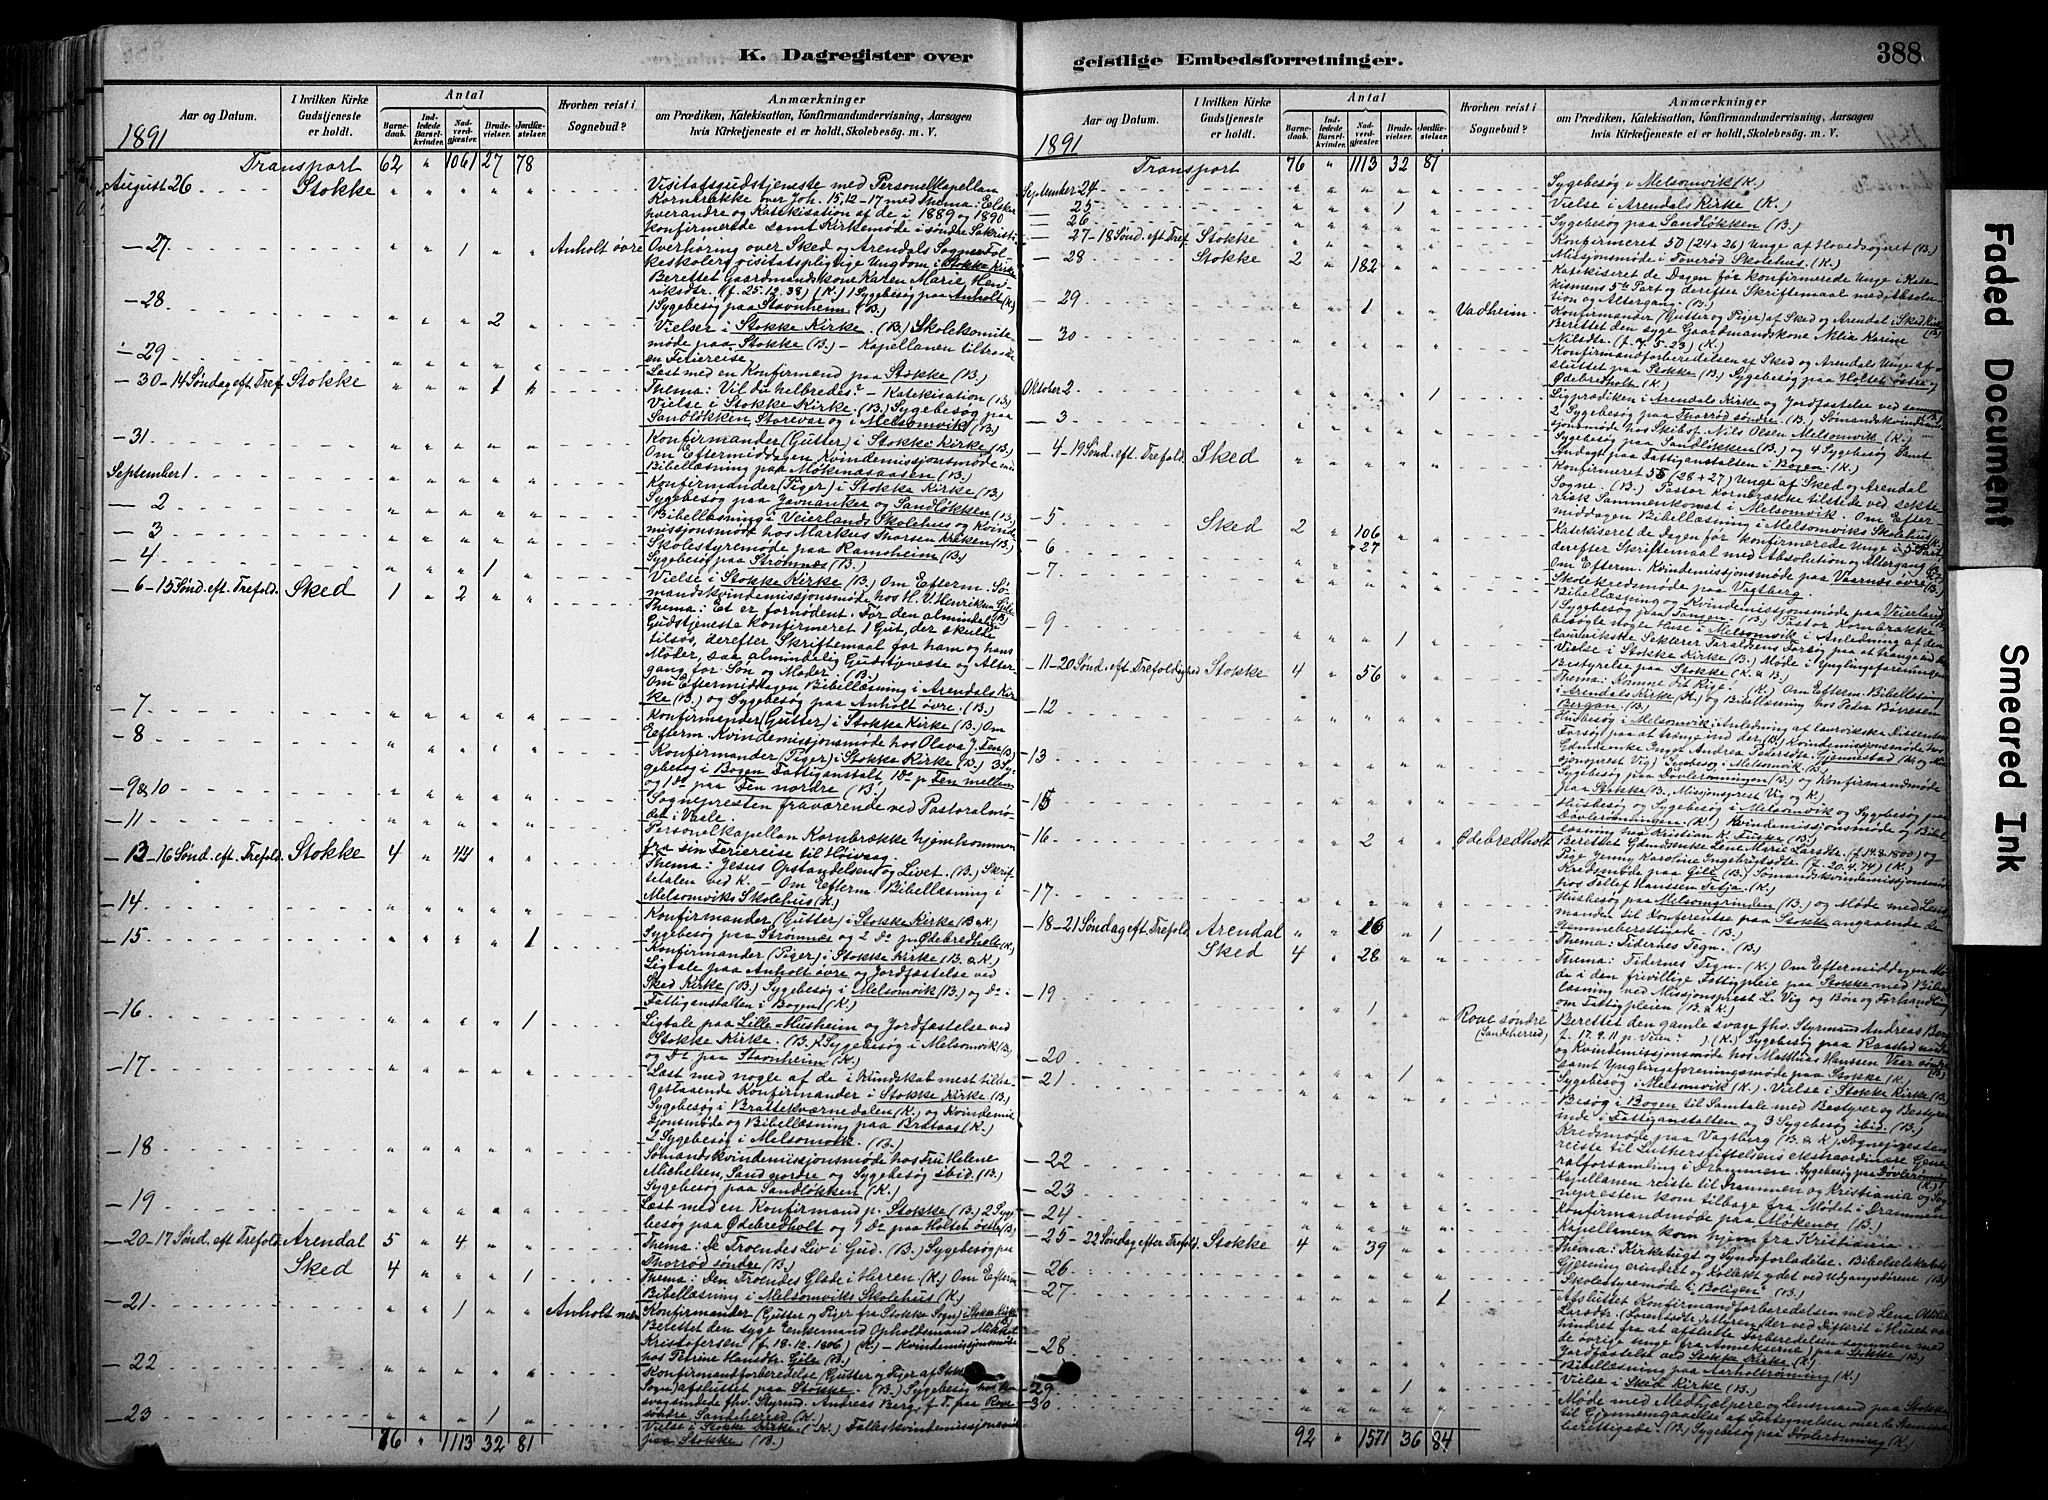 K. Dagregister over
Aar og Datum.
I hvilken Kirke Gudstjeneste er holdt.
Antal
Barnedaab.
Indledede Barselkvinder.
Nadverdgjester.
Brudevielser.
Jordfæstelser.
Hvorhen reist i Sognebud?
Anmærkninger
om Prædiken, Katekisation, Konfirmandundervisning, Aarsagen
hvis Kirketjeneste ei er holdt, Skolebesøg. m. V.
1891
Transport 62 " 1061 27 78
August 26 Stokke " " " " " Visitatsgudstjeneste med Personelkapellan
Kornbrække over Joh. 15,12-17 med Thema: Elsker
hverandre og Katekisation af de i 1889 og 1890
konfirmerede samt Kirkemøde i søndre Sakristi
- 27 " " 1 " " Anholt øvre Overhøring over Sked og Arendals Sognes Fol-
keskolers visitatspligtige Ungdom i Stokke Kirke
Berettet Gaardmandskone Karen Marie Hen-
riksdtr. (f. 25.12.38) (K.) 1 Sygebesøg paa Anholt (K.)
1 Sygebesøg paa Stavnheim (B.)
- 28 " " " 2 " Vielser i Stokke Kirke. (B.) Skolekomite-
møde paa Stokke (B.) - Kapellanen tiltraadte
en Feriereise.
- 29 " " " " " Læst med en Konfirmand paa Stokke (B.)
- 30-14 Søndag eft. Tref. Stokke " " " 1 " Thema: Vil du helbredes? - Katekisation (B.)
Vielse i Stokke Kirke. (B.) Sygebesøg paa
Sandløkken, Storevar og i Melsomvik (B.)
- 31 " " " " " Konfirmander (Gutter) i Stokke Kirke (B.)
Om Eftermiddagen Kvindemissionsmøde med
Bibellæsning paa Møkenasaasen (B.)
September 1 " " " " " Konfirmander (Piger) i Stokke Kirke (B.)
Sygebesøg paa Jarnanker og Sandløkken (B.)
- 2 " " " " " Bibellæsning i Veierlands Skolehus og Kvinde-
missjonsmøde hos Markus Thorsen Kräken (B.)
- 3 " " " " " Skolestyremøde paa Ramsheim (B.)
- 4 " " " 1 " Sygebesøg paa Strømnes (B.)
Vielse i Stokke Kirke (B.) Om Efterm. Sø-
mandskvindemissionsmøde hos H. V. Henriksen Gile (B.)
- 6-15 Sønd. eft. Trefold. Sked 1 " 2 " " Thema: Et er fornødent. Før den almindelige
Gudstjeneste konfirmeret 1 Gut, der skulde
tilsøs, derefter Skriftemaal for ham og hans
Moder, saa almindelig Gudstjeneste og Alter-
gang for Søn og Moder. (B.)
Om Eftermiddagen Bibellæsning i Arendals Kir-
ke (B.) og Sygebesøg paa Anholt øvre. (B.)
- 7 " " " " " Konfirmander (Gutter) i Stokke Kirke (B.) Om
Efterm. Kvindemissjonsmøde hos Oleva J. Fen (B.)
- 8 " " " " " Konfirmander (Piger) i Stokke Kirke (B.) 3 Sy-
gebesøg i Bogen Fattiganstalt 1 Do p. Fen mellem
og 1 Do paa Fen nordre (B.)
- 9 & 10 " " " " " Sognepresten fraværende ved Pastoralmø-
det i Vasle.
- 11 " " " " " Personelkapellan Kornbrække hjemkommen
fra sin Feriereise til Høivaag
- 13-16 Sønd. eft. Trefold. Stokke 4 " 44 " " Thema: Jesus Opstandelsen og Livet. (B.) Skrif-
tetalen ved K. - Om Efterm. Bibellæsning i
Melsomviks Skolehus (K.)
- 14 " " " " " Konfirmander (Gutter) i Stokke Kirke (B & K.)
Sygebesøg paa Strømnes og 2 Do p. Ødebredholt (K.)
- 15 " " " " 1 Konfirmander (Piger) i Stokke Kirke (B. & K.)
Ligtale paa Anholt øvre og Jordfæstelse ved
Sked Kirke (B.) Sygebesøg i Melsomvik (B.) og Do i
Fattiganstalten i Bogen (K.)
- 16 " " " " 1 Ligtale paa Lille-Husheim og Jordfæstelse ved
Stokke Kirke. (B.) Sygebesøg i Melsomvik (B.)
og Do paa Stavnheim (K.)
- 17 " " " " " Læst med nogle af de i Kundskab mest tilba-
gestaaende Konfirmander i Stokke Kirke (B.)
Sygebesøg i Brattekværnedalen (K.) og Kvindemis-
sjonsmøde og Bibellæsning paa Brataas (K.)
2 Sygebesøg i Melsomvik. (B.)
- 18 " " " " " Sømandskvindemissionsmøde hos Fru Helene
Michelsen, Sand nordre og Sygebesøg ibid. (B.)
Sygebesøg paa Sandløkken (K.)
- 19 " " " " " Læst med en Konfirmand p. Stokke (B.) 2 Syge-
besøg paa Ødebredholt og 1 Do paa Holtet østre (B.)
- 20-17 Sønd. eft. Trefold. Arendal 5 " 4 " " Thema: De Troendes Liv i Gud. (B.) Sygebesøg paa
Thorrød søndre (B.)
Sked 4 " " " 1 Thema: Den Troendes Glæde i Herren (K.) Om Efterm
Bibellæsning i Melsomviks Skolehus (K.)
- 21 " " 1 " " Anholt nedre Konfirmander (Gutter og Piger fra Stokke Sogn) i Stokke Kirke (B.)
Berettet den syge Enkemand Opholdsmand Mikkel
Kristofersen (f. 18.12.1806) (K.) - Kvindemissjonsmøde
hos Petrine Hansdtr. Gile (B.)
- 22 " " " " " Konfirmandforberedelse (Gutter og Piger af Stokke
Sogn) afsluttet paa Stokke. (B.) Sygebesøg hos den
svagsindede fhv. Styrmd. Andreas Berg, f. T. paa Rove
søndre Sandeherred (K.)
- 23 " " " 1 " Vielse i Stokke Kirke. (K.) Folkskvindemissjonsmøde
paa Stokke (B.)
76 " 1113 32 81
geistlige Embedsforretninger.
388
Aar og Datum.
I hvilken Kirke Gudstjeneste er holdt.
Antal
Barnedaab.
Indledede Barselkvinder.
Nadverdgjester.
Brudevielser.
Jordfæstelser.
Hvorhen reist i Sognebud?
Anmærkninger
om Prædiken, Katekisation, Konfirmandundervisning, Aarsagen
hvis Kirketjeneste ei er holdt, Skolebesøg. m. V.
1891
Transport 76 " 1113 32 81
September 24 " " " " " Sygebesøg i Melsomvik (K.)
- 25 " " " 1 " Vielse i Arendals Kirke (K.)
- 26 " " " " " Sygebesøg paa Sandløkken (B.)
- 27-18 Sønd. eft. Tref. Stokke " " " " " Konfirmeret 50 (24+26) Unge af Hovedsognet (B.)
Missjonsmøde i Toverød Skolehus. (K.)
- 28 Stokke 2 " 182 " " Katekiseret de Dagen før konfirmerede Unge i Kate-
kismens 5te Part og derefter Skriftemaal med Absolu-
tion og Altergang. (B.)
- 29 " " 1 " " Vadheim Konfirmander (Gutter og Piger) af Sked og Arendal i Sked Kirke (B.)
Berettet den syge Gaardmandskone Aktia Karine
Nilsdtr. (f. 7.5.23) (K.)
- 30 " " " " " Konfirmandforberedelsen af Sked og Arendals Unge af-
sluttet paa Stokke (B.) Sygebesøg paa Holtet østre og
Ødebredholt (K.)
Oktober 2 " " " " 1 Ligprædiken i Arendals Kirke og Jordfæstelse ved samme (B.)
2 Sygebesøg paa Thorrød søndre. (B.) Sømandskvindemis-
sjonsmøde hos Skibsf. Nils Olsen Melsomvik (K.)
- 3 " " " " " Sygebesøg paa Sandløkken (B.) og 4 Sygebesøg samt
Andagt paa Fattiganstalten i Bogen. (K.)
- 4-19 Sønd. eft. Trefold. Sked " " " " " Konfirmeret 55 (28+27) Unge af Sked og Arendal
Sogne. (B.) Pastor Kornbrække tilstede ved sekte-
risk Sammenkomst i Melsomvik. Om Efter-
middagen Bibellæsning i Melsomviks Skolehus (K.)
- 5 Sked 2 " 106 " " Katekiseret de Dagen før konfirmerede Unge i 5te Part
+27 derefter Skriftemaal med Absolution og Altergang (B.)
Om Efterm. Kvindemissionsmøde paa Vaarnes øvre (B.)
- 6 " " " " Skolekredsmøde paa Vagtberg.
- 7 " " " " " Bibellæsning og Kvindemissionsmøde paa Veierland
1 Sygebesøg paa Tangen. (B.) Pastor Kornbrække
besøgte nogle Huse i Melsomvik i Anledning af den
laurvikske Sekterer Taraldsens Forsøg paa at trænge ind
- 9 " " " 1 " Vielse i Stokke Kirke (B.) Møde i Ynglingeforeningens
Bestyrelse paa Stokke (K. & B.)
- 11-20 Sønd. eft. Trefoldighed Stokke 4 " 56 " " Thema: Komme dit Rige. (K.) Om Efterm. Bibellæsning
i Arendals Kirke (K.) og Bibellæsning hos Peder Børresen
Bergan. (B.)
- 12 " " " " " Husbesøg i Melsomvik i Anledning af laurvikske Dissenters
Forsøg paa at trænge ind der. (K.) Kvindemissjonsmøde hos
Gdmdenke Inger Andrea Pedersdtr. Gjennestad (K. og Mis-
sjonsprest Vig) Sygebesøg i Melsomvik. (B.)
- 13 " " " " " Sygebesøg paa Døvlerønningen (B.) og Konfirmandmøde
paa Stokke (B., Missjonsprest Vig og K.)
- 15 " " " " " Husbesøg og Sygebesøg i Melsomvik og Sygebesøg paa
Døvlerønningen. (K.) Kvindemissjonsmøde og Bibel-
læsning hos Kristian K. Furke. (B.)
- 16 " " 2 " " Ødebredholt Berettet Gdmdsenke Lene Marie Larsdtr. (f. 14.8.1800) og
Pige Jenny Karoline Ingebrigtsdtr. (f. 20.4.74) (K.)
Kredsmøde paa Gile (B.) Sømandskvindemissionsmøde
hos Tellef Hanssen Fetja. (K.)
- 17 " " " " " Husbesøg paa Melsomgrinden (B.) og Møde med Lens-
mandet til Konferentse paa Stokke angaaende de
Stemmeberettigede. (B.)
- 18-21 Søndag eft. Trefold. Arendal " " 16 " 1 Thema: Tidernes Tegn. (B.)
Sked 4 " 28 " " Thema: Tidernes Tegn. (K.) Om Eftermiddagen Mø-
de i den frivillige Fattigpleie paa Stokke med Bibel-
læsning ved Missjonsprest L. Vig og Bøn og Forhandling
om Fattigpleien (B. & K.)
- 19 " " 1 " " Rove søndre (Sandeherred) Berettet den gamle svage fhv. Styrmand Andreas Berg
f. 17.9.11 p. Veien? ) (K.) Sygebesøg paa Raastad nedre
og Kvindemissionsmøde hos Mathias Hanssen Vear søndre (B.)
- 20 " " " " " samt Ynglingeforeningsmøde paa Stokke (K.)
- 21 " " " 1 " Sygebesøg i Melsomvik (K.). Vielse i Stokke Kirke (B.)
Besøg i Bogen til Samtale med Bestyrer og Bestyrer-
inde i Fattiganstalten og 3 Sygebesøg ibid. (B.)
Kredsmøde paa Vagtberg (B. & K.) Sognepresten
reiste til Lutherstiftelsens ekstraordinære Gene-
ralforsamling i Drammen. Sygebesøg paa Døvlerønning (K.)
- 22 " " " " " Kapellanen reiste til Drammen og Kristiania og Sog-
- 23 " " " " " nepresten kom tilbage fra Mødet i Drammen
- 24 " " " " " Konfirmandmøde paa Møkenes (B.)
Kapellanen kom hjem fra Kristiania
- 25-22 Søndag efter Trefold. Stokke 4 " 39 " " Thema: Kirketugt og Syndsforladelse. Bibelselskabets
Gjerning erindret og Kollekt ydet ved Udgangsdørene (B.)
- 26 " " " " " Skolestyremøde i Boligen. (B.)
- 27 " " " " 1 Afsluttet Konfirmandforberedelsen med Lena Othilie
Larsdtr. (Lorentsdtr.) Myren, der ved Difterit i Huset var
hindret fra at afslutte Forberedelsen sammen med
de øvrige unge fra Annekserne) paa Stokke (B.)
Jordfæstelse ved Stokke Kirke (K.)
- 28 " " " " " Bibellæsning paa Aarholtrønning (K.)
- 29 " " " 1 " Vielse i Sked Kirke (B.)
- 30 " " " " " Møde med Medhjælpere og Lensmand paa Stokke
til Gjennemgaaelse af Fortegnelsen over de Stemme-
berettigede. (B.) Sygebesøg paa Døvlerønning (K.)
92 " 1571 36 84
Faded Document
Smeared Ink